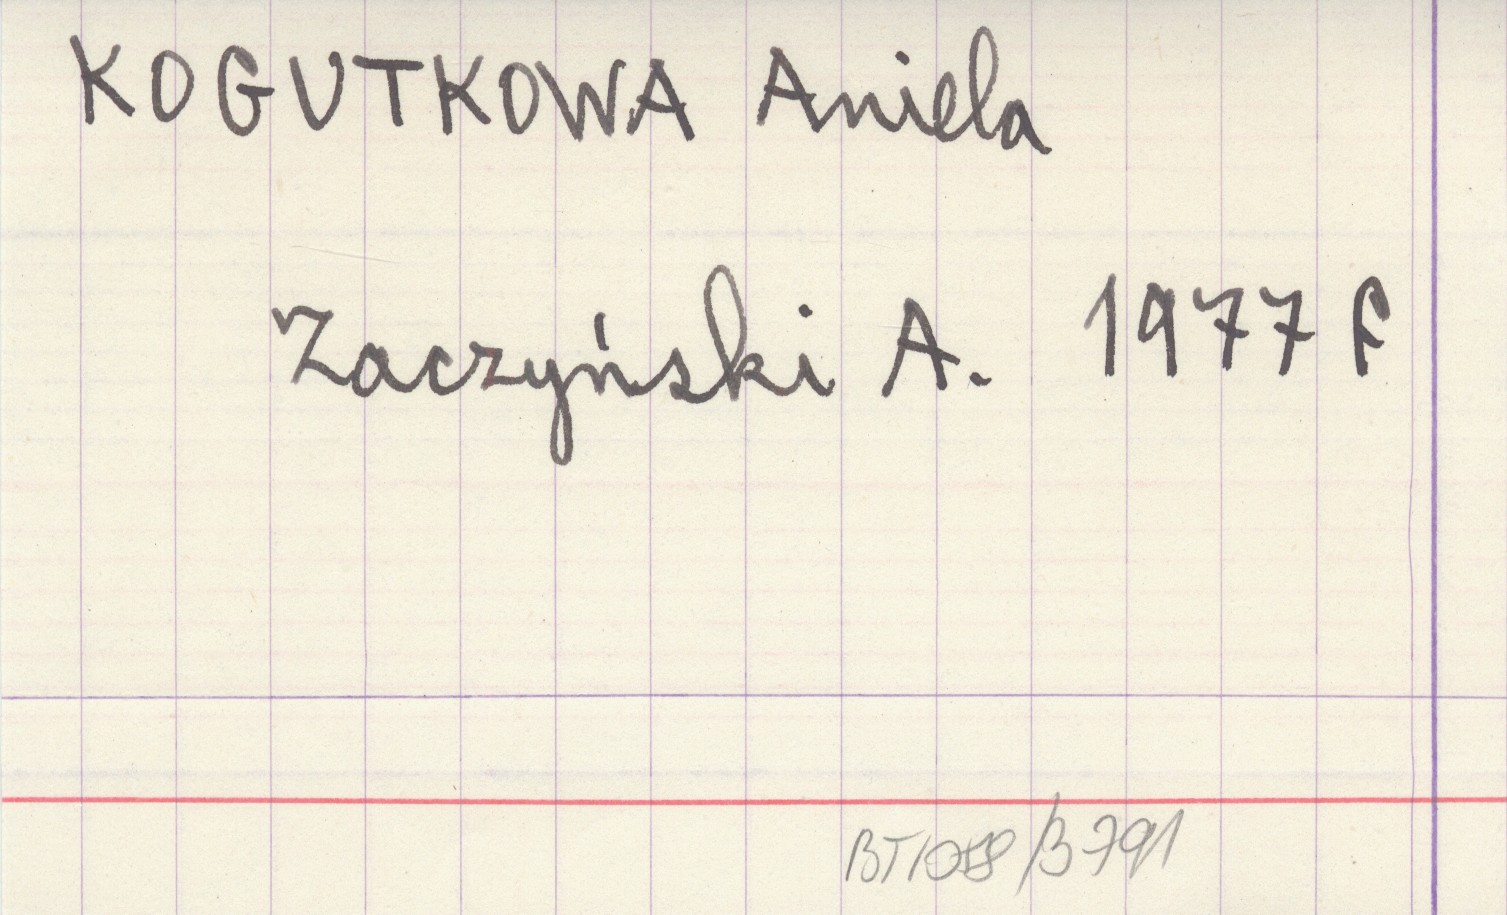 KOGUTKOWA Aniela
Zaczyński A. 1977 f
B 791